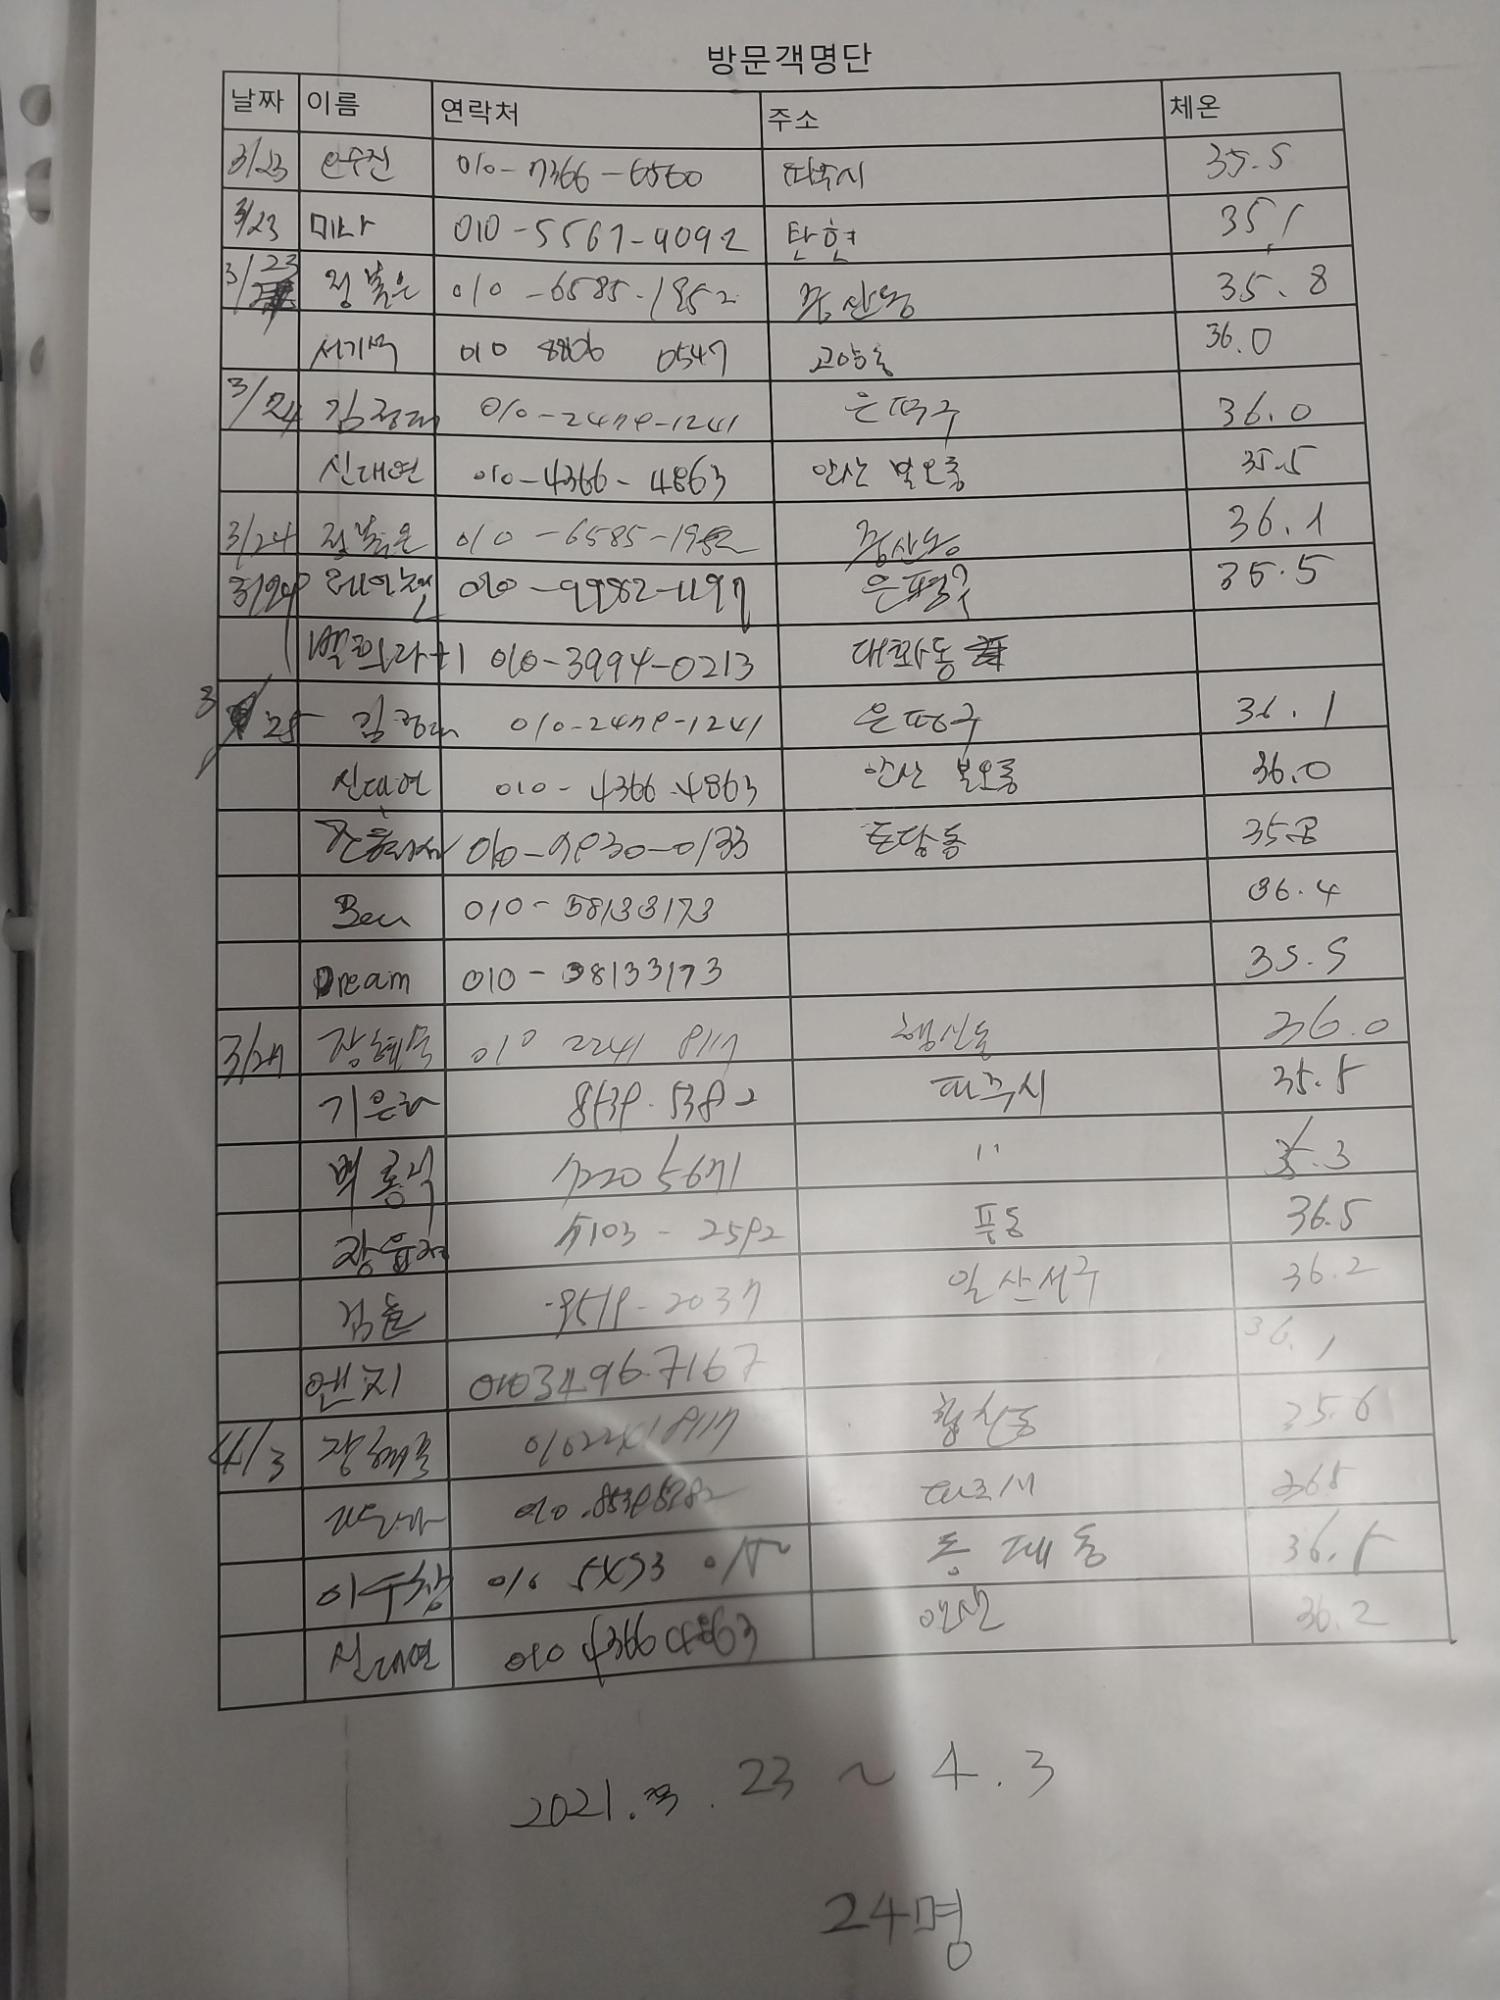 방문객명단
날짜 이름 연락처 주소 체온
3/23 안수진 010-7366-6560 파주시 35.5
3/23 미나 010-5567-9092 탄현 35.1
3/23 010-6585-1952 중산동 35.8
서기벽 010 8806 0547 고양동 36.0
3/24 김정대 010-2479-1241 은평구 36.0
신대연 010-4366-4863 안산 본오동 35.5
3/24 010-6585-1952 중산동 36.1
3/24 010-9982-1197 은평구 35.5
010-3994-0213 대화동
3/25 김정대 010-2479-1241 은평구 36.1
신대연 010-4366-4863 안산 본오동 36.0
010-9830-0133 토당동 35.8
Ben 010-58133173 36.4
Dream 010-38133173 35.5
3/27 장혜숙 010 2241 8117 행신동 36.0
기은하 8539-5382 파주시 35.5
백홍식 7220 5671 " 35.3
5103-2592 풍동 36.5
김솔 -9519-2037 일산서구 36.2
엔지 010 3496 7167 36.1
4/3 01022418117 행신동 35.6
010-85395382 파주시 36.5
이수창 010 동패동 36.5
신대연 010 4366 4863 안산 36.2
2021. 3. 23 ~ 4. 3
24명